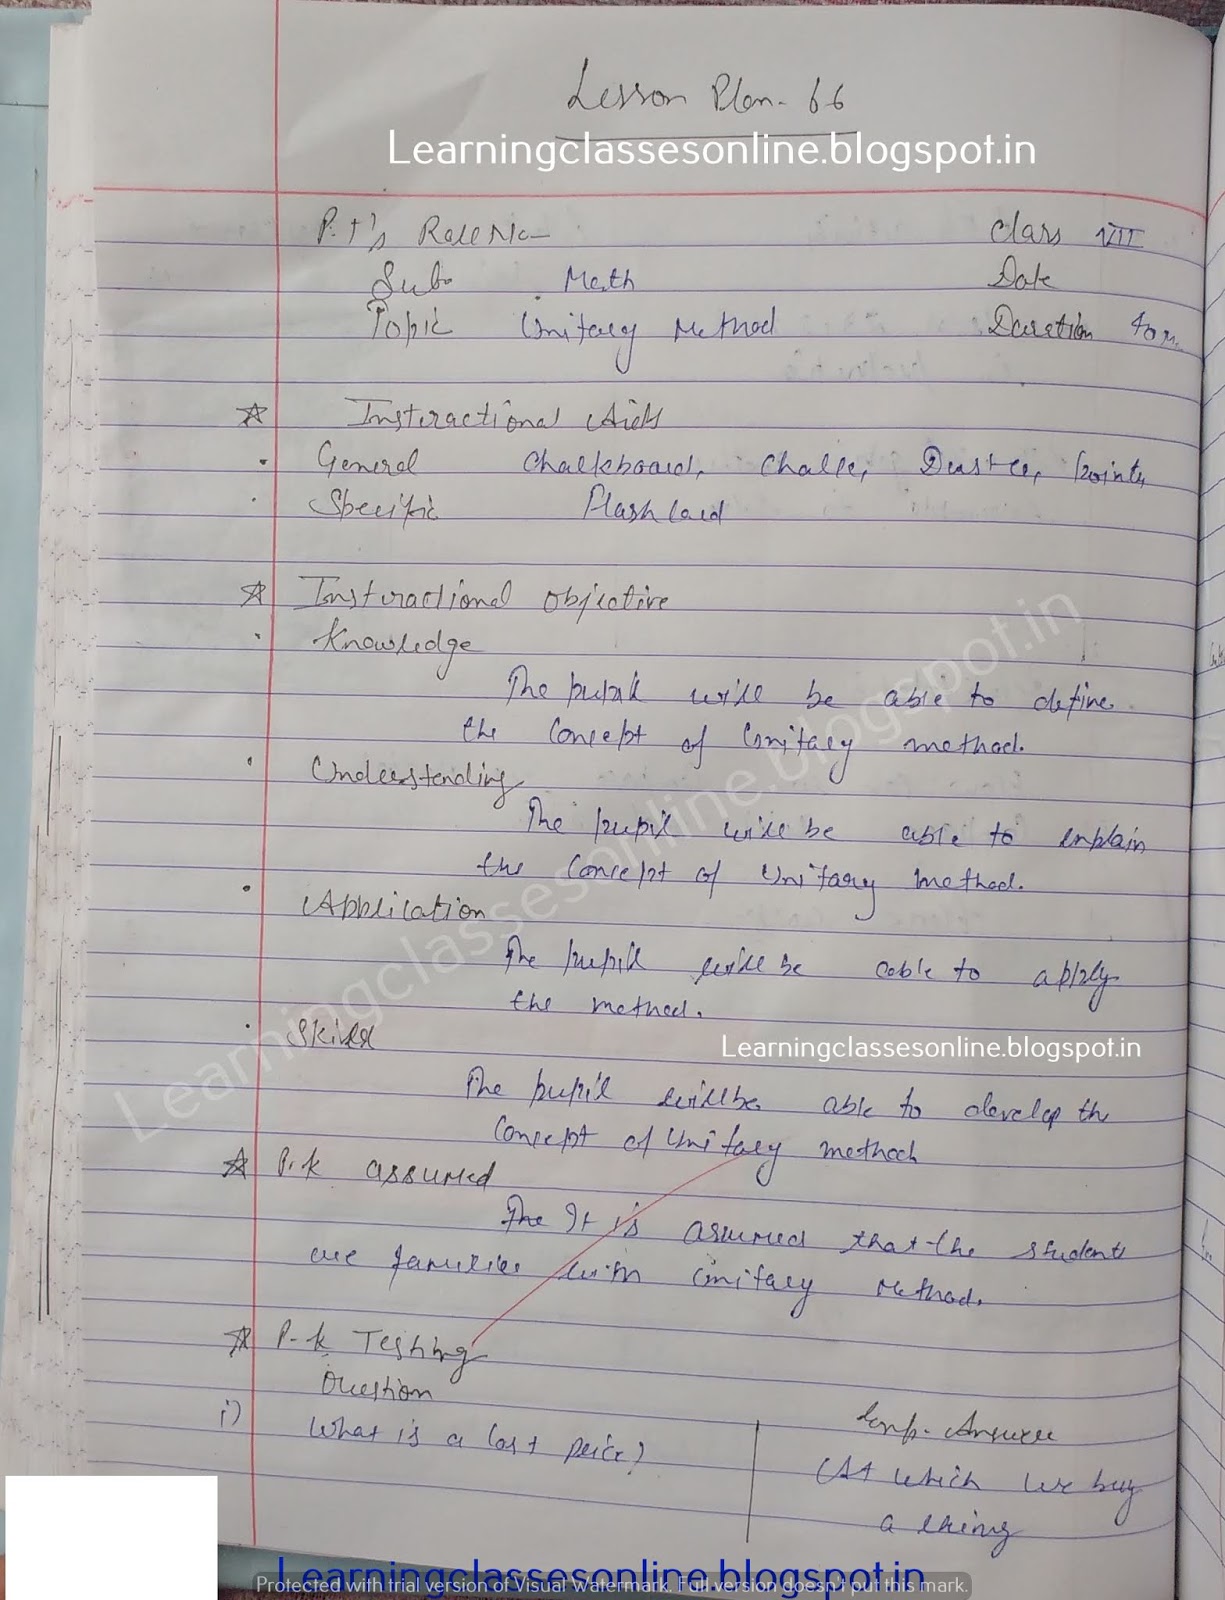 Lesson Plan - 66
Learningclassesonline.blogspot.in
P.T's Roll No- Class VIII
Sub. Math Date
Topic Unitary Method Duration
Instructional Aids
General Chalkboard, Chalk, Duster, Pointer
Specific Flash Card
Instructional objective
Knowledge
The pupil will be able to define
the concept of Unitary method.
Understanding
The pupil will be able to explain
the concept of Unitary method.
Application
The pupil will be able to apply
the method.
Skill
Learningclassesonline.blogspot.in
The pupil will be able to develop the
Concept of Unitary method
P.k assumed
The It is assumed that the students
are with Unitary Method.
P-k Testing
Question
Answer
i) What is a Cost price?
At which we buy
a thing
Learningclassesonline.blogspot.in
Learningclassesonline.blogspot.in
Protected with trial version of Visual Watermark. Full version doesn't put this mark.